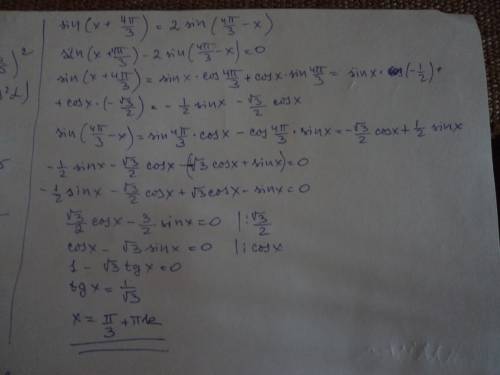 sin(x + 4π/3) = 2 sin(4π/3 - x)
sin(x + 4π/3) - 2 sin(4π/3 - x) = 0
sin(x + 4π/3) = sinx · cos 4π/3 + cosx · sin 4π/3 = sinx · (-1/2) +
+ cosx · (-√3/2) = - 1/2 sinx - √3/2 cosx
sin(4π/3 - x) = sin 4π/3 · cosx - cos 4π/3 · sinx = -√3/2 cosx + 1/2 sinx
-1/2 sinx - √3/2 cosx - (√3 cosx + sinx) = 0
-1/2 sinx - √3/2 cosx + √3 cosx - sinx = 0
√3/2 cosx - 3/2 sinx = 0 | : √3/2
cosx - √3 sinx = 0 | : cosx
1 - √3 tgx = 0
tgx = 1/√3
x = π/3 + πk